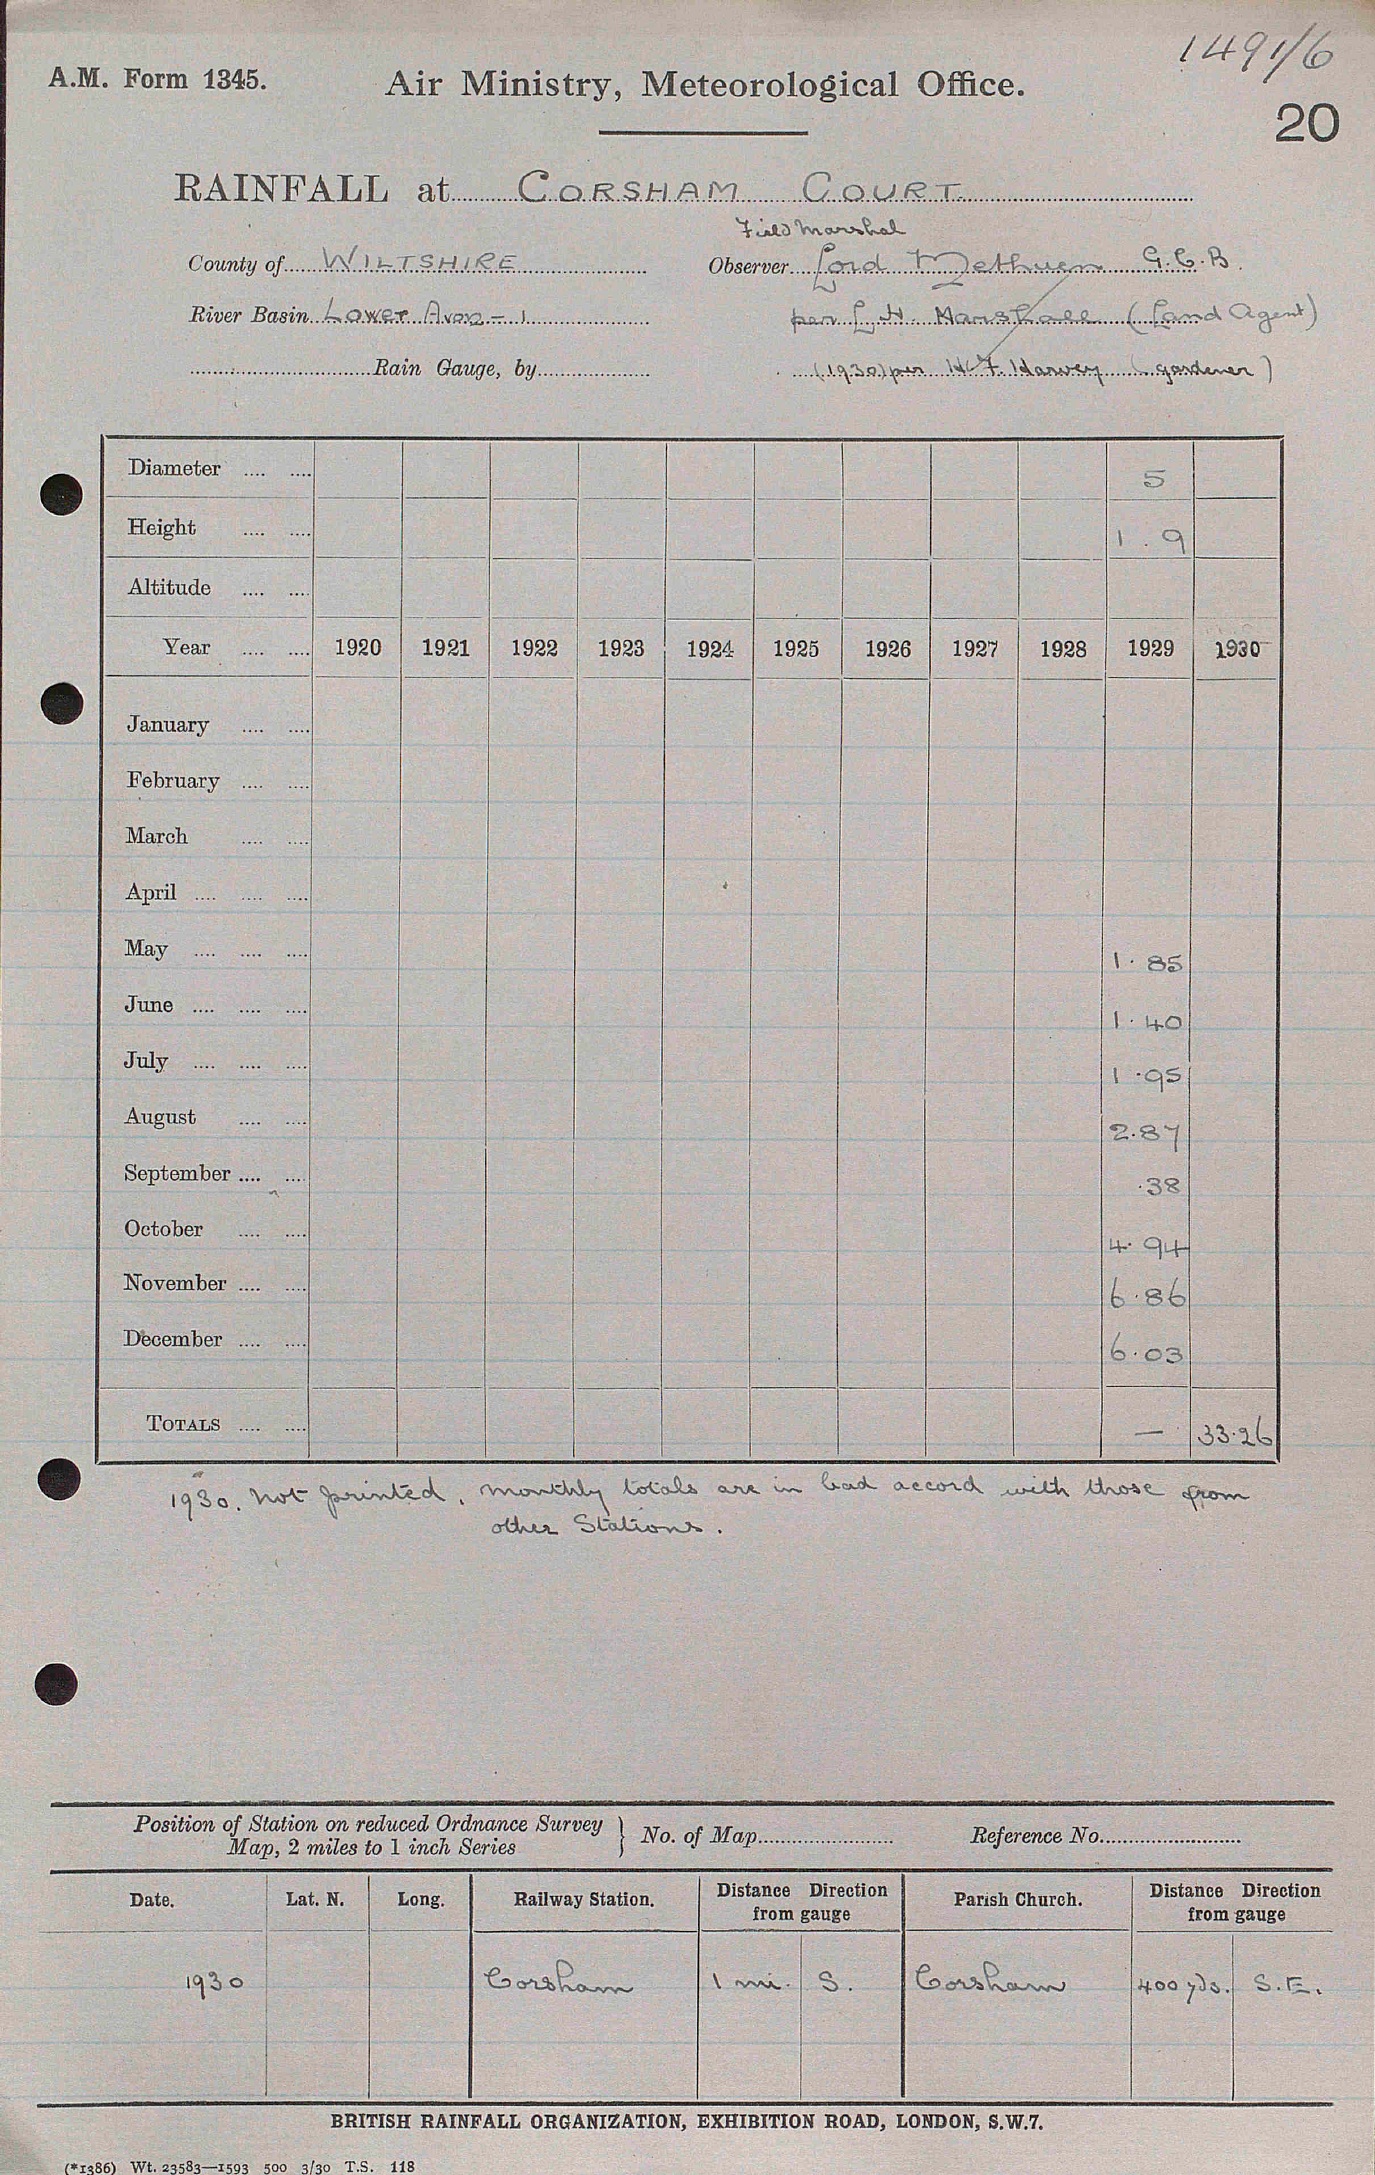 1491/6
A.M. Form 1345. Air Ministry, Meteorological Office.
20
RAINFALL at CORSHAM COURT.
Field Marshal
County of WILTSHIRE Observer Lord Methuen G.C.B.
River Basin Lower Avon - 1 per L. H. Marshall (Land Agent)
Rain Gauge, by (1930) per H. F. Harvey (gardener)
Diameter 5
Height 1.9
Altitude
Year 1920 1921 1922 1923 1924 1925 1926 1927 1928 1929 1930
January
February
March
April
May 1.85
June 1.40
July 1.95
August 2.87
September .38
October 4.94
November 6.86
December 6.03
TOTALS — 33.26
1930. Not printed, monthly totals are in bad accord with those from
other Stations.
Position of Station on reduced Ordnance Survey
Map, 2 miles to 1 inch Series } No. of Map Reference No.
Date. Lat. N. Long. Railway Station. Distance Direction from gauge Parish Church. Distance Direction from gauge
1930 Corsham 1 mi. S. Corsham 400 yds. S.E.
BRITISH RAINFALL ORGANIZATION, EXHIBITION ROAD, LONDON, S.W.7.
(*1386) Wt. 23583—1593 500 3/30 T.S. 118